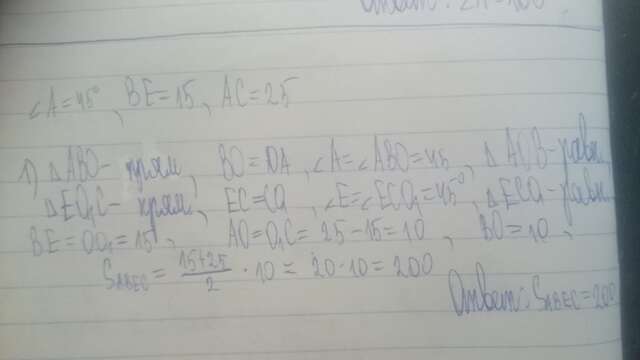 Ответ:
∠A=45°, BE=15, AC=25
1) △ABO- прям, BO=OA, ∠A=∠ABO=45, △AOB-равн.
△EO₁C- прям, EC=CO, ∠E=∠ECO₁=45°, △ECO-равн.
BE=OO₁=15, AO=O₁C=25-15=10, BO=10,
Sᴀʙᴇᴄ = 15+25/2 · 10 = 20·10=200
Ответ: Sᴀʙᴇᴄ=200